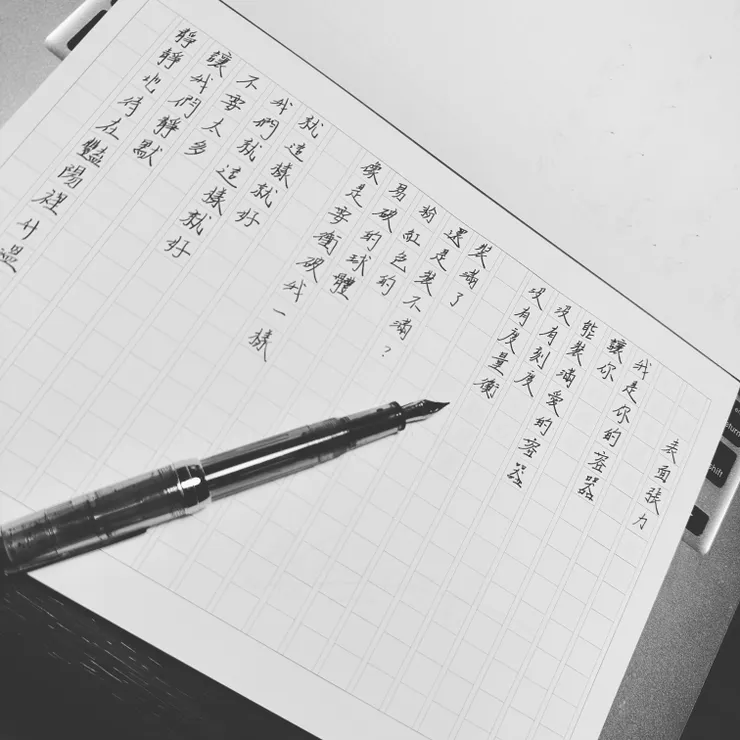 表面張力
我是你的容器
讓你
能裝滿愛的容器
沒有刻度
沒有度量衡
裝滿了
還是裝不滿？
粉紅色的
易破的球體
像是要衝破我一樣
就這樣就好
我們就這樣就好
不要太多
讓我們靜默
靜靜地待在豔陽裡升溫
shift